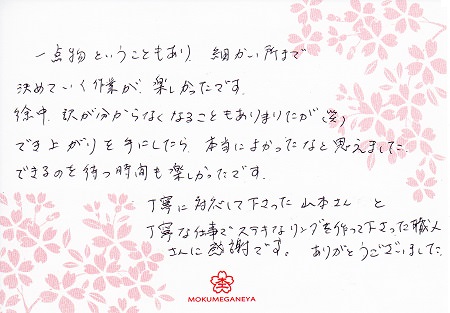 一点物ということもあり、細かい所まで
決めていく作業が、楽しかったです。
途中、訳が分からなくなることもありましたが(笑)
でき上がりを手にしたら、本当によかったなと思えました。
できるのを待つ時間も楽しかったです。
丁寧に対応して下さった山本さんと
丁寧な仕事でステキなリングを作って下さった職人
さんに感謝です。ありがとうございました。
MOKUMEGANEYA